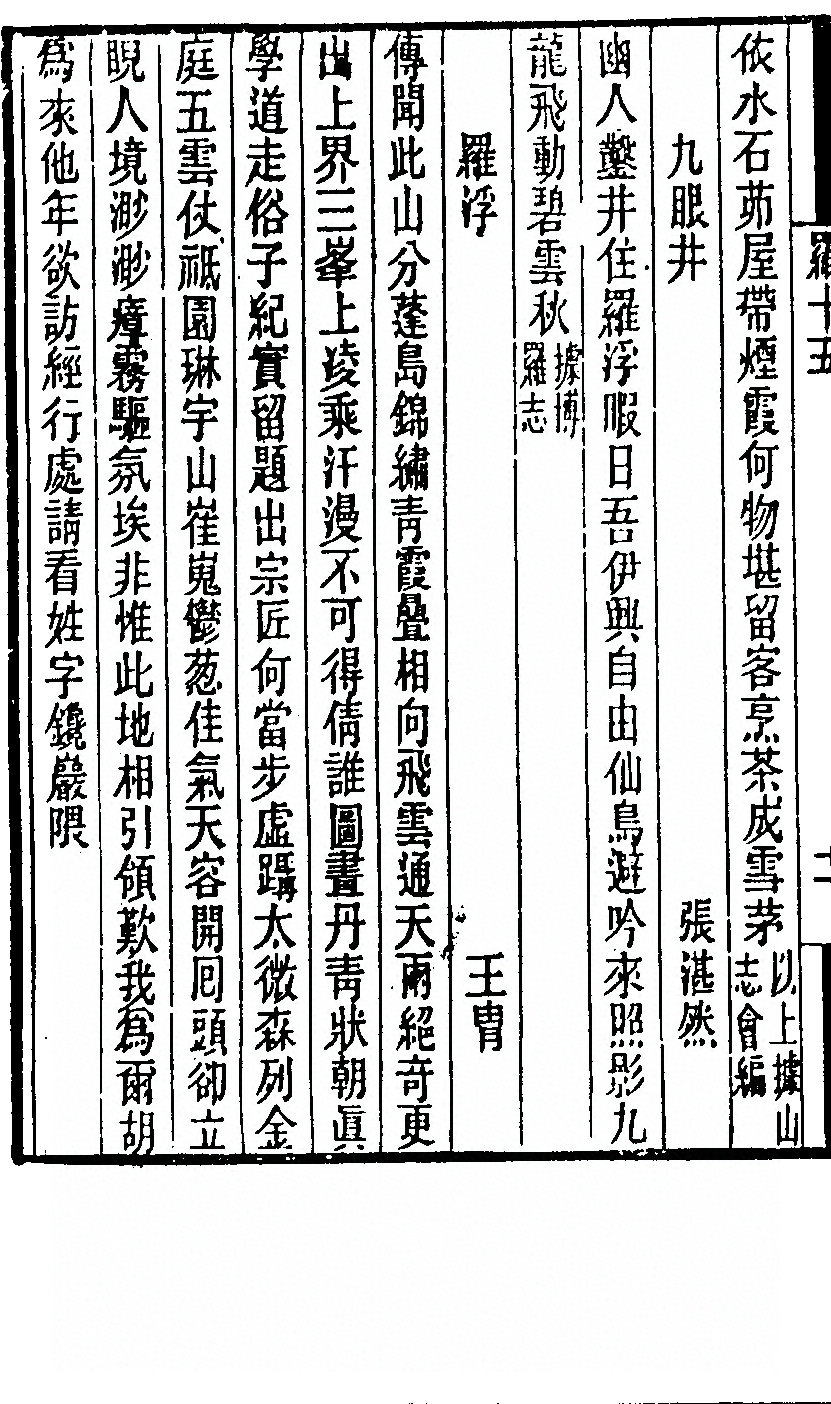 羅十五
十一
依水石茆屋帶煙霞何物堪留客烹茶成雪芽以上據山志會編
九眼井　張湛然
幽人鑿井住羅浮暇日吾伊興自由仙鳥避吟來照影九
龍飛動碧雲秋據博羅志
羅浮　王胄
傳聞此山分蓬島錦繡青霞疊相向飛雲通天兩絕奇更
出上界三峯上凌乘汗漫不可得倩誰圖畫丹青狀朝眞
學道走俗子紀實留題出宗匠何當步虛躡太微森列金
庭五雲仗祗園琳宇山崔嵬鬱葱佳氣天容開回頭卻立
睨人境渺渺瘴霧驅氛埃非惟此地相引領歎我爲爾胡
爲來他年欲訪經行處請看姓字鑱巖隈